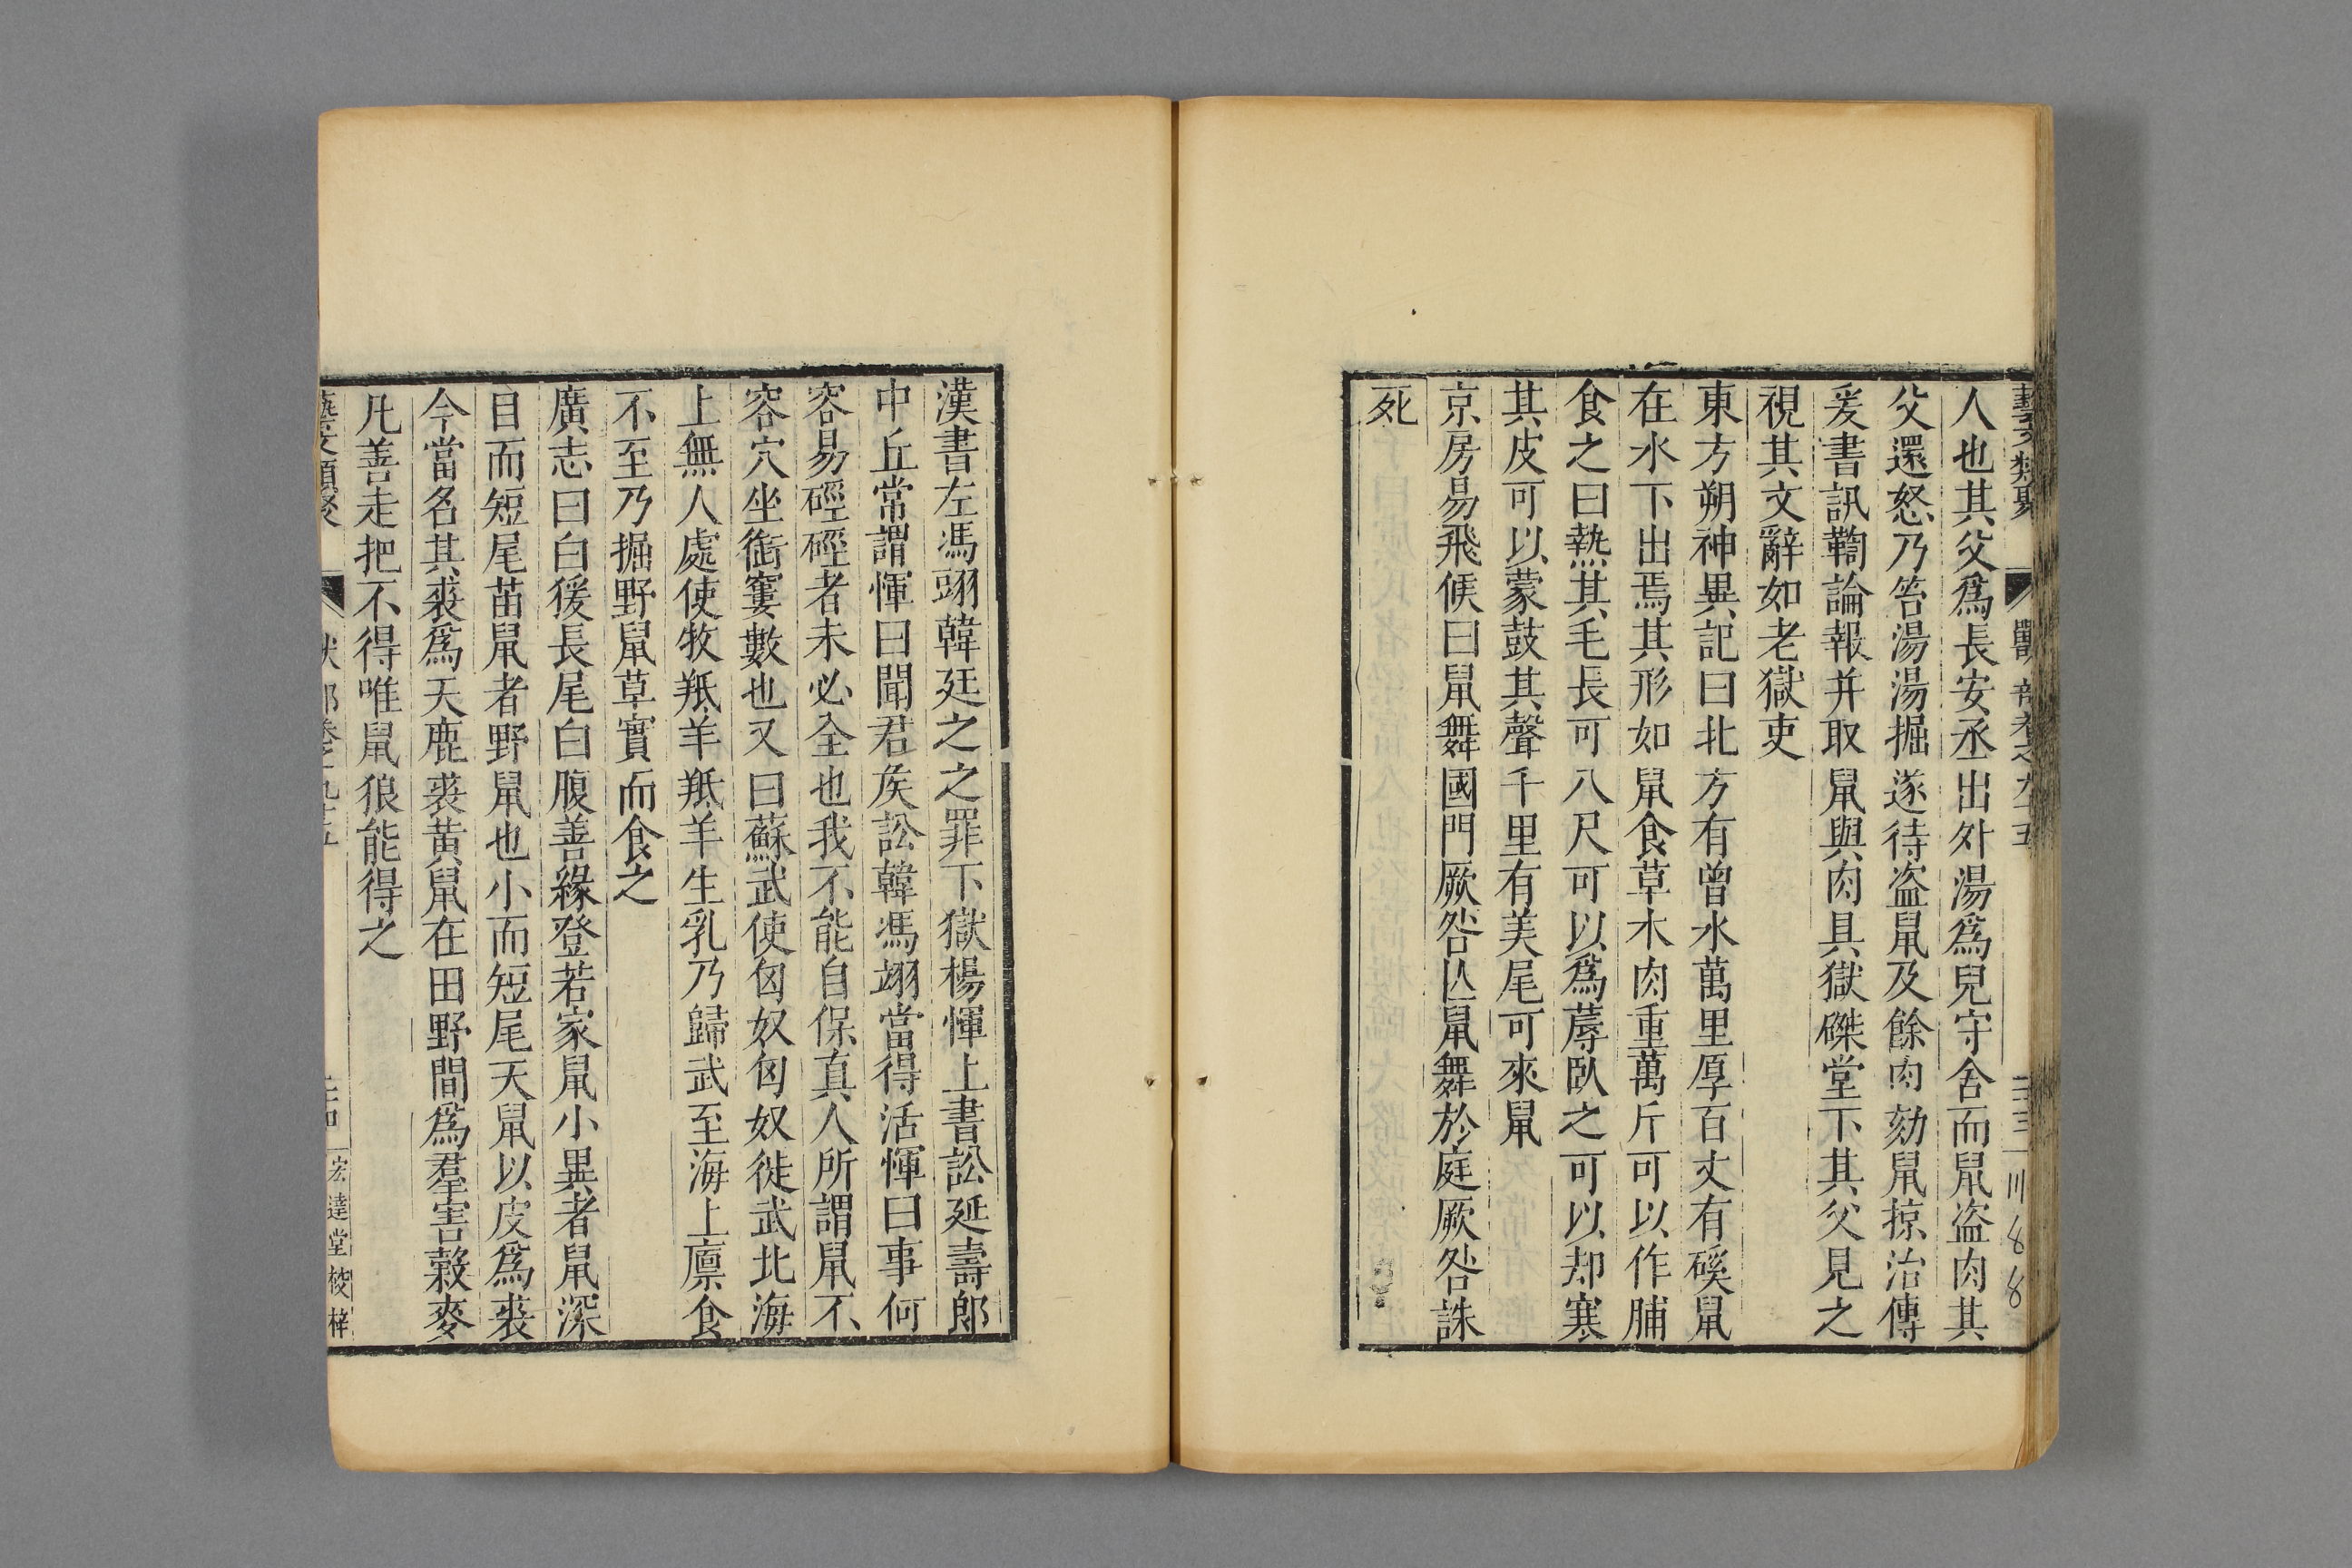 藝文類聚 獸部卷之九十五 三十三 川88
人也其父爲長安丞出外湯爲兒守舍而鼠盗肉其
父還怒乃笞湯湯掘遂待盗鼠及餘肉劾鼠掠治傳
爰書訊鞫論報并取鼠與肉具獄磔堂下其父見之
視其文辭如老獄吏
東方朔神異記曰北方有曾水萬里厚百丈有磎鼠
在水下出焉其形如鼠食草木肉重萬斤可以作脯
食之曰熱其毛長可八尺可以爲蓐臥之可以却寒
其皮可以蒙鼓其聲千里有美尾可來鼠
京房易飛候曰鼠舞國門厥咎亾鼠舞於庭厥咎誅
死
漢書左馮翊韓廷之之罪下獄楊惲上書訟延壽郎
中丘常謂惲曰聞君矦訟韓馮翊當得活惲曰事何
容易硜硜者未必全也我不能自保真人所謂鼠不
容穴坐銜窶數也又曰蘇武使匈奴匈奴徙武北海
上無人處使牧羝羊羝羊生乳乃歸武至海上廪食
不至乃掘野鼠草實而食之
廣志曰白猨長尾白腹善緣登若家鼠小異者鼠深
目而短尾苗鼠者野鼠也小而短尾天鼠以皮爲裘
今當名其裘爲天鹿裘黄鼠在田野間爲羣害穀麥
凡善走把不得唯鼠狼能得之
藝文類聚 部卷之九十五 三十四 宏達堂校梓